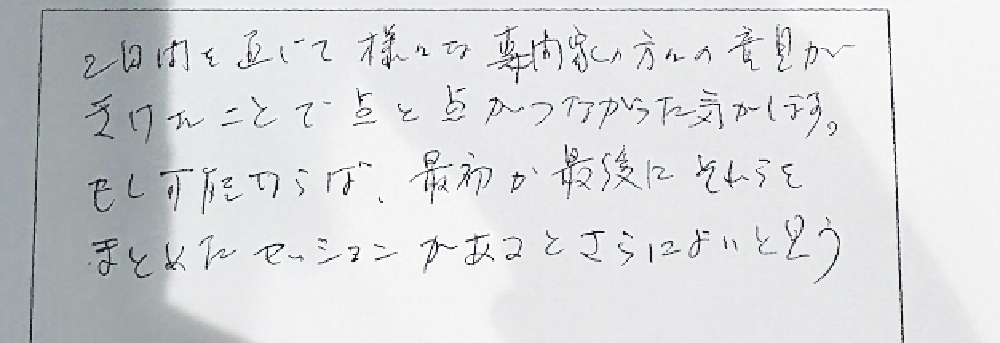 2日間を通じて様々な専門家の方々の意見が
受けれたことで点と点がつながった気がします。
もし可能ならば、最初か最後にそれらを
まとめたセッションがあるとさらによいと思う